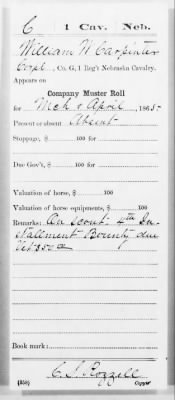 C | 1 Cav. | Neb.
William N Carpinter
Corpl., Co. G, 1 Reg't Nebraska Cavalry.
Appears on
Company Muster Roll
for Mch & April, 1865
Present or absent Absent
Stoppage, $ 100 for
Due Gov't, $ 100 for
Valuation of horse, $ 100
Valuation of horse equipments, $ 100
Remarks: On scout. 4th In-
stallment Bounty due
Vet $50 00
Book mark:
C. S. Rozzell
(358) Copyist